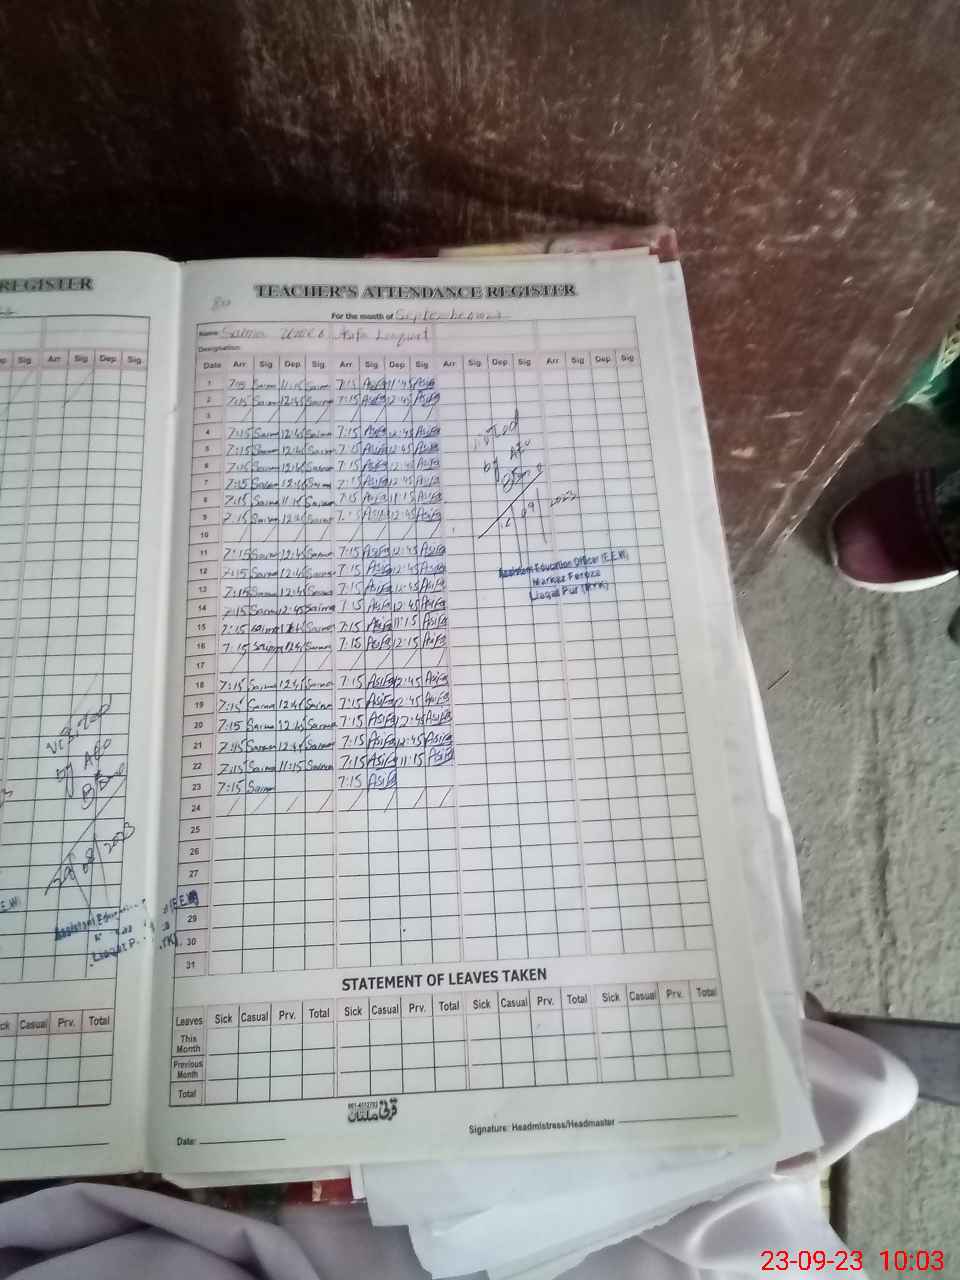 REGISTER
Sig. Arr Sig Dep Sig.
visited
by AEO
29/08/2023
Assistant Education
Casual Prv. Total
TEACHER'S ATTENDANCE REGISTER
For the month of September 2023
Name: Saima Asifa Liaquat
Designation:
Date Arr Sig Dep Sig. Arr Sig Dep Sig Arr Sig Dep Sig Arr Sig Dep Sig
1 7:15 Saima 11:15 Saima 7:15 Asifa 11:45 Asifa
2 7:15 Saima 12:45 Saima 7:15 Asifa 12:45 Asifa
3
4 7:15 Saima 12:45 Saima 7:15 Asifa 12:45 Asifa
5 7:15 Saima 12:45 Saima 7:15 Asifa 12:45 Asifa
6 7:15 Saima 12:45 Saima 7:15 Asifa 12:45 Asifa
7 7:15 Saima 12:45 Saima 7:15 Asifa 12:45 Asifa
8 7:15 Saima 11:15 Saima 7:15 Asifa 11:15 Asifa
9 7:15 Saima 12:45 Saima 7:15 Asifa 12:45 Asifa
10
11 7:15 Saima 12:45 Saima 7:15 Asifa 12:45 Asifa
12 7:15 Saima 12:45 Saima 7:15 Asifa 12:45 Asifa
13 7:15 Saima 12:45 Saima 7:15 Asifa 12:45 Asifa
14 7:15 Saima 12:45 Saima 7:15 Asifa 12:45 Asifa
15 7:15 Saima Saima 7:15 Asifa 11:15 Asifa
16 7:15 Saima Saima 7:15 Asifa 12:15 Asifa
17
18 7:15 Saima 12:45 Saima 7:15 Asifa 12:45 Asifa
19 7:15 Saima 12:45 Saima 7:15 Asifa 12:45 Asifa
20 7:15 Saima 12:45 Saima 7:15 Asifa 12:45 Asifa
21 7:15 Saima 12:45 Saima 7:15 Asifa 12:45 Asifa
22 7:15 Saima 11:15 Saima 7:15 Asifa 11:15 Asifa
23 7:15 Saima 7:15 Asifa
24
25
26
27
29
30
31
visited
by AEO
09/2023
Assistant Education Officer (E.E.W)
Markaz Feroza
Liaqat Pur (RYK)
STATEMENT OF LEAVES TAKEN
Leaves Sick Casual Prv. Total Sick Casual Prv. Total Sick Casual Prv. Total Sick Casual Prv. Total
This Month
Previous Month
Total
Date:
Signature: Headmistress/Headmaster
23-09-23 10:03